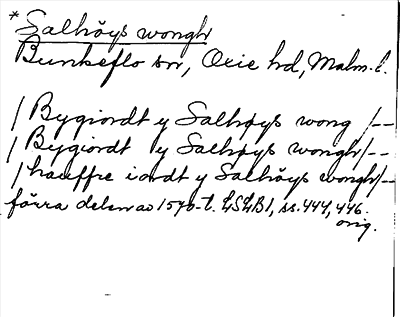 * Salhöys wongh
Bunkeflo sn, Oxie hd, Malm. l.
/ Bygiordt y Salhøys wong /--
/ Bygiordt y Salhøys wongh/--
/ hauffre iordt y Salhöys wongh/--
förra delen av 1570-t. LSLB1, ss. 444, 446.
orig.